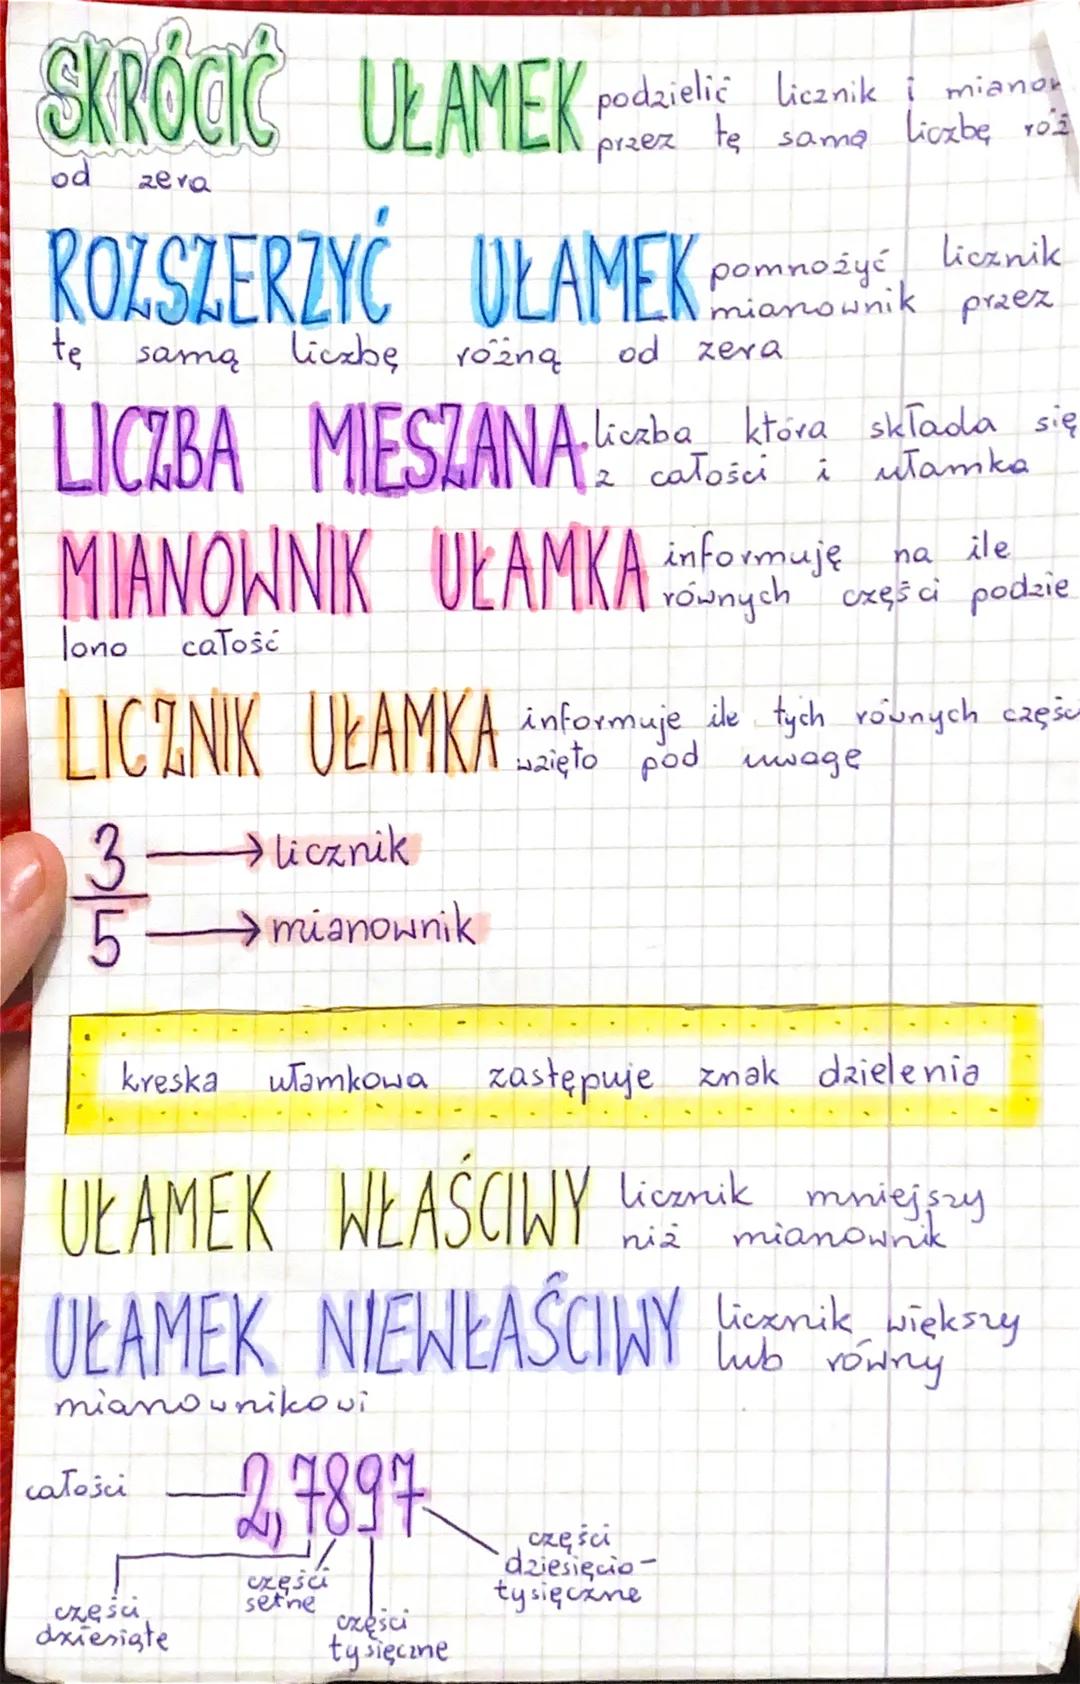 SKRÓCIĆ UŁAMEK podzielić licznik i mianow
przez tę samą liczbę róż
od zera
ROZSZERZYĆ UŁAMEK pomnożyć licznik
mianownik przez
tę samą liczbę różną od zera
LICZBA MIESZANA liczba która składa się
z całości i ułamka
MIANOWNIK UŁAMKA informuję na ile
równych części podzie
lono całość
LICZNIK UŁAMKA informuje ile tych równych częśc
wzięto pod uwagę
3 → licznik
5 → mianownik
kreska ułamkowa zastępuje znak dzielenia
UŁAMEK WŁAŚCIWY licznik mniejszy
niż mianownik
UŁAMEK NIEWŁAŚCIWY licznik większy
lub równy
mianownikowi
całości 2,7897
części
dziesięcio-
tysięczne
części
setne
części
dziesiąte
części
tysięczne